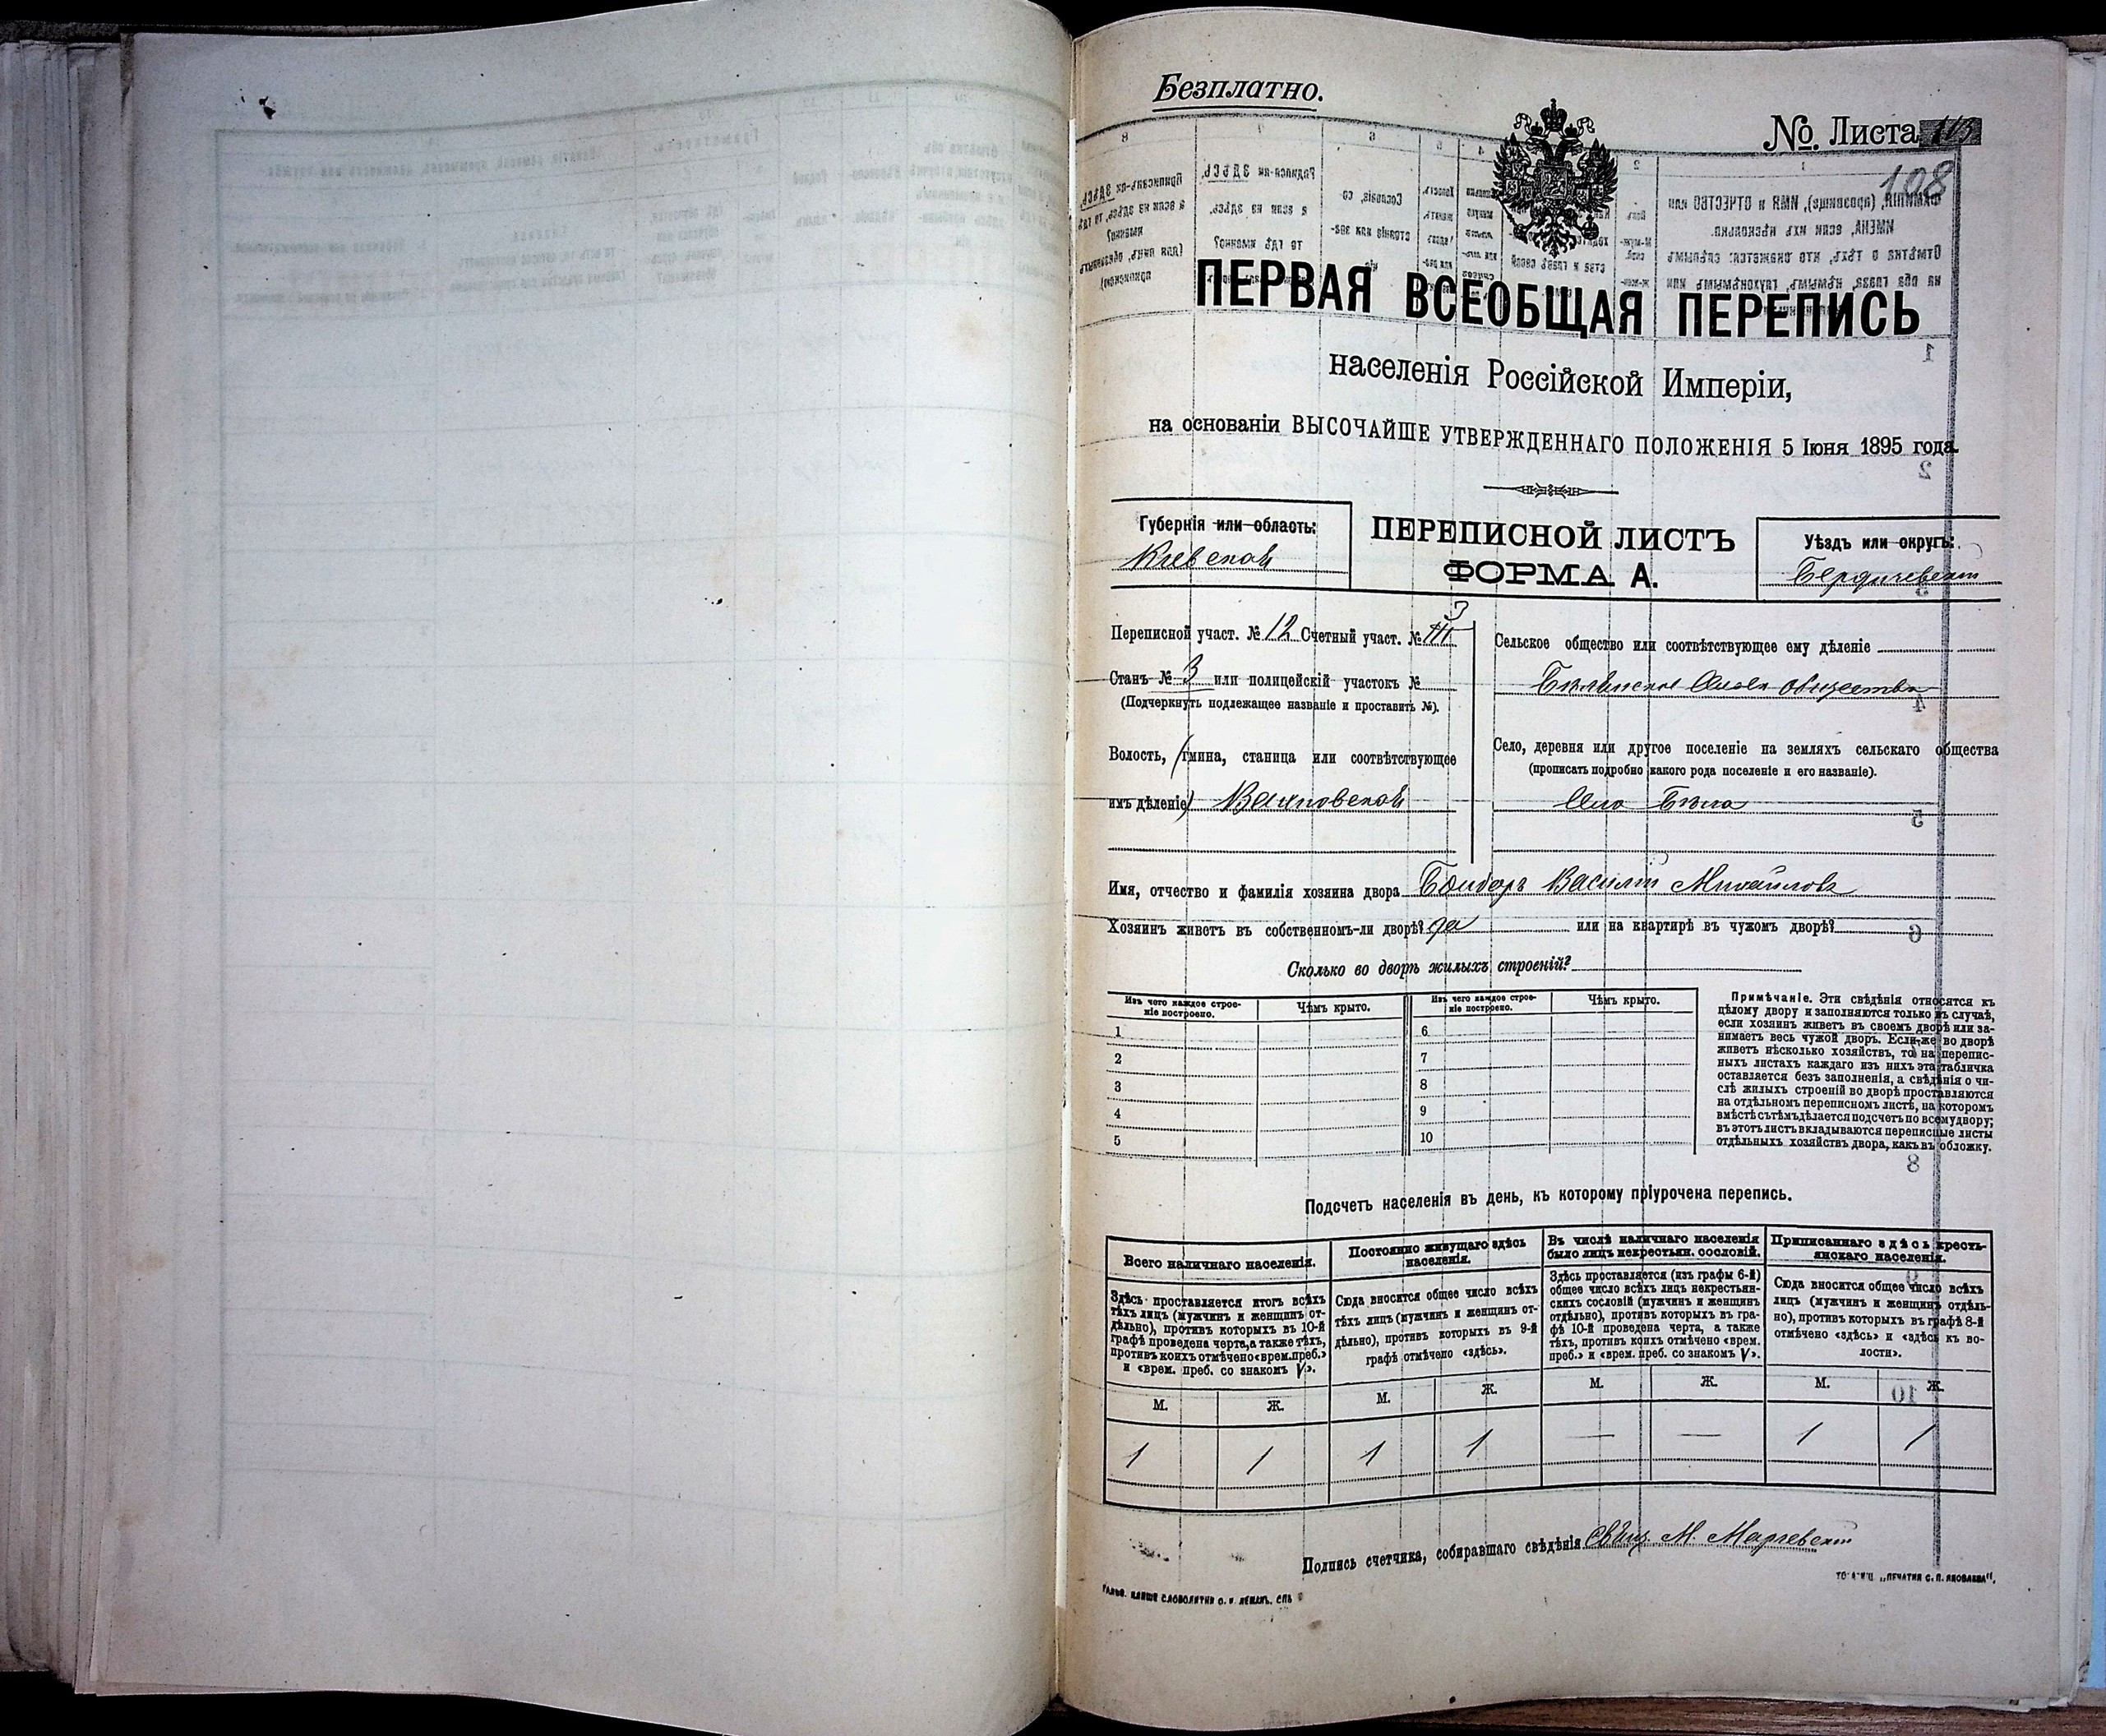 Безплатно.
№ Листа
108
ПЕРВАЯ ВСЕОБЩАЯ ПЕРЕПИСЬ
населенія Россійской Имперіи,
на основаніи ВЫСОЧАЙШЕ УТВЕРЖДЕННАГО ПОЛОЖЕНІЯ 5 Іюня 1895 года.
Губернія или область:
Кіевской
ПЕРЕПИСНОЙ ЛИСТЪ
ФОРМА А.
Уѣздъ или округъ:
Бердичевскій
Переписной участ. № 12 Счетный участ. № 3
Станъ № 3 или полицейскій участокъ №
(Подчеркнуть подлежащее названіе и проставить №).
Волость, (гмина, станица или соотвѣтствующее
имъ дѣленіе) Вахновской
Сельское общество или соотвѣтствующее ему дѣленіе
общества
Село, деревня или другое поселеніе на земляхъ сельскаго общества
(прописать подробно какого рода поселеніе и его названіе).
Село
Имя, отчество и фамилія хозяина двора Бондарь Василій Михайловъ
Хозяинъ живетъ въ собственномъ-ли дворѣ? да или на квартирѣ въ чужомъ дворѣ?
Сколько во дворѣ жилыхъ строеній?
Изъ чего каждое строе-
ніе построено.
Чѣмъ крыто.
1
2
3
4
5
Изъ чего каждое строе-
ніе построено.
Чѣмъ крыто.
6
7
8
9
10
Примѣчаніе. Эти свѣдѣнія относятся къ
цѣлому двору и заполняются только въ случаѣ,
если хозяинъ живетъ въ своемъ дворѣ или за-
нимаетъ весь чужой дворъ. Если-же во дворѣ
живетъ нѣсколько хозяйствъ, то на перепис-
ныхъ листахъ каждаго изъ нихъ эта табличка
оставляется безъ заполненія, а свѣдѣнія о чи-
слѣ жилыхъ строеній во дворѣ проставляются
на отдѣльномъ переписномъ листѣ, на которомъ
вмѣстѣ съ тѣмъ дѣлается подсчетъ по всему двору;
въ этотъ листъ вкладываются переписные листы
отдѣльныхъ хозяйствъ двора, какъ въ обложку.
Подсчетъ населенія въ день, къ которому пріурочена перепись.
Всего наличнаго населенія.
Здѣсь проставляется итогъ всѣхъ
тѣхъ лицъ (мужчинъ и женщинъ от-
дѣльно), противъ которыхъ въ 10-й
графѣ проведена черта, а также тѣхъ,
противъ коихъ отмѣчено «врем. преб.»
и «врем. преб. со знакомъ V».
М. Ж.
1 1
Постоянно живущаго здѣсь
населенія.
Сюда вносится общее число всѣхъ
тѣхъ лицъ (мужчинъ и женщинъ от-
дѣльно), противъ которыхъ въ 9-й
графѣ отмѣчено «здѣсь».
М. Ж.
1 1
Въ числѣ наличнаго населенія
было лицъ некрестьян. сословій.
Здѣсь проставляется (изъ графы 6-й)
общее число всѣхъ лицъ некрестьян-
скихъ сословій (мужчинъ и женщинъ
отдѣльно), противъ которыхъ въ гра-
фѣ 10-й проведена черта, а также
тѣхъ, противъ коихъ отмѣчено «врем.
преб.» и «врем. преб. со знакомъ V».
М. Ж.
— —
Приписаннаго здѣсь кресть-
янскаго населенія.
Сюда вносится общее число всѣхъ
лицъ (мужчинъ и женщинъ отдѣль-
но), противъ которыхъ въ графѣ 8-й
отмѣчено «здѣсь» и «здѣсь къ во-
лости».
М. Ж.
1 1
Подпись счетчика, собиравшаго свѣдѣнія М.